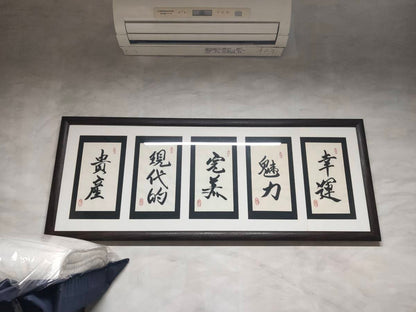 幸運
魅力
完美
現代的
貴産